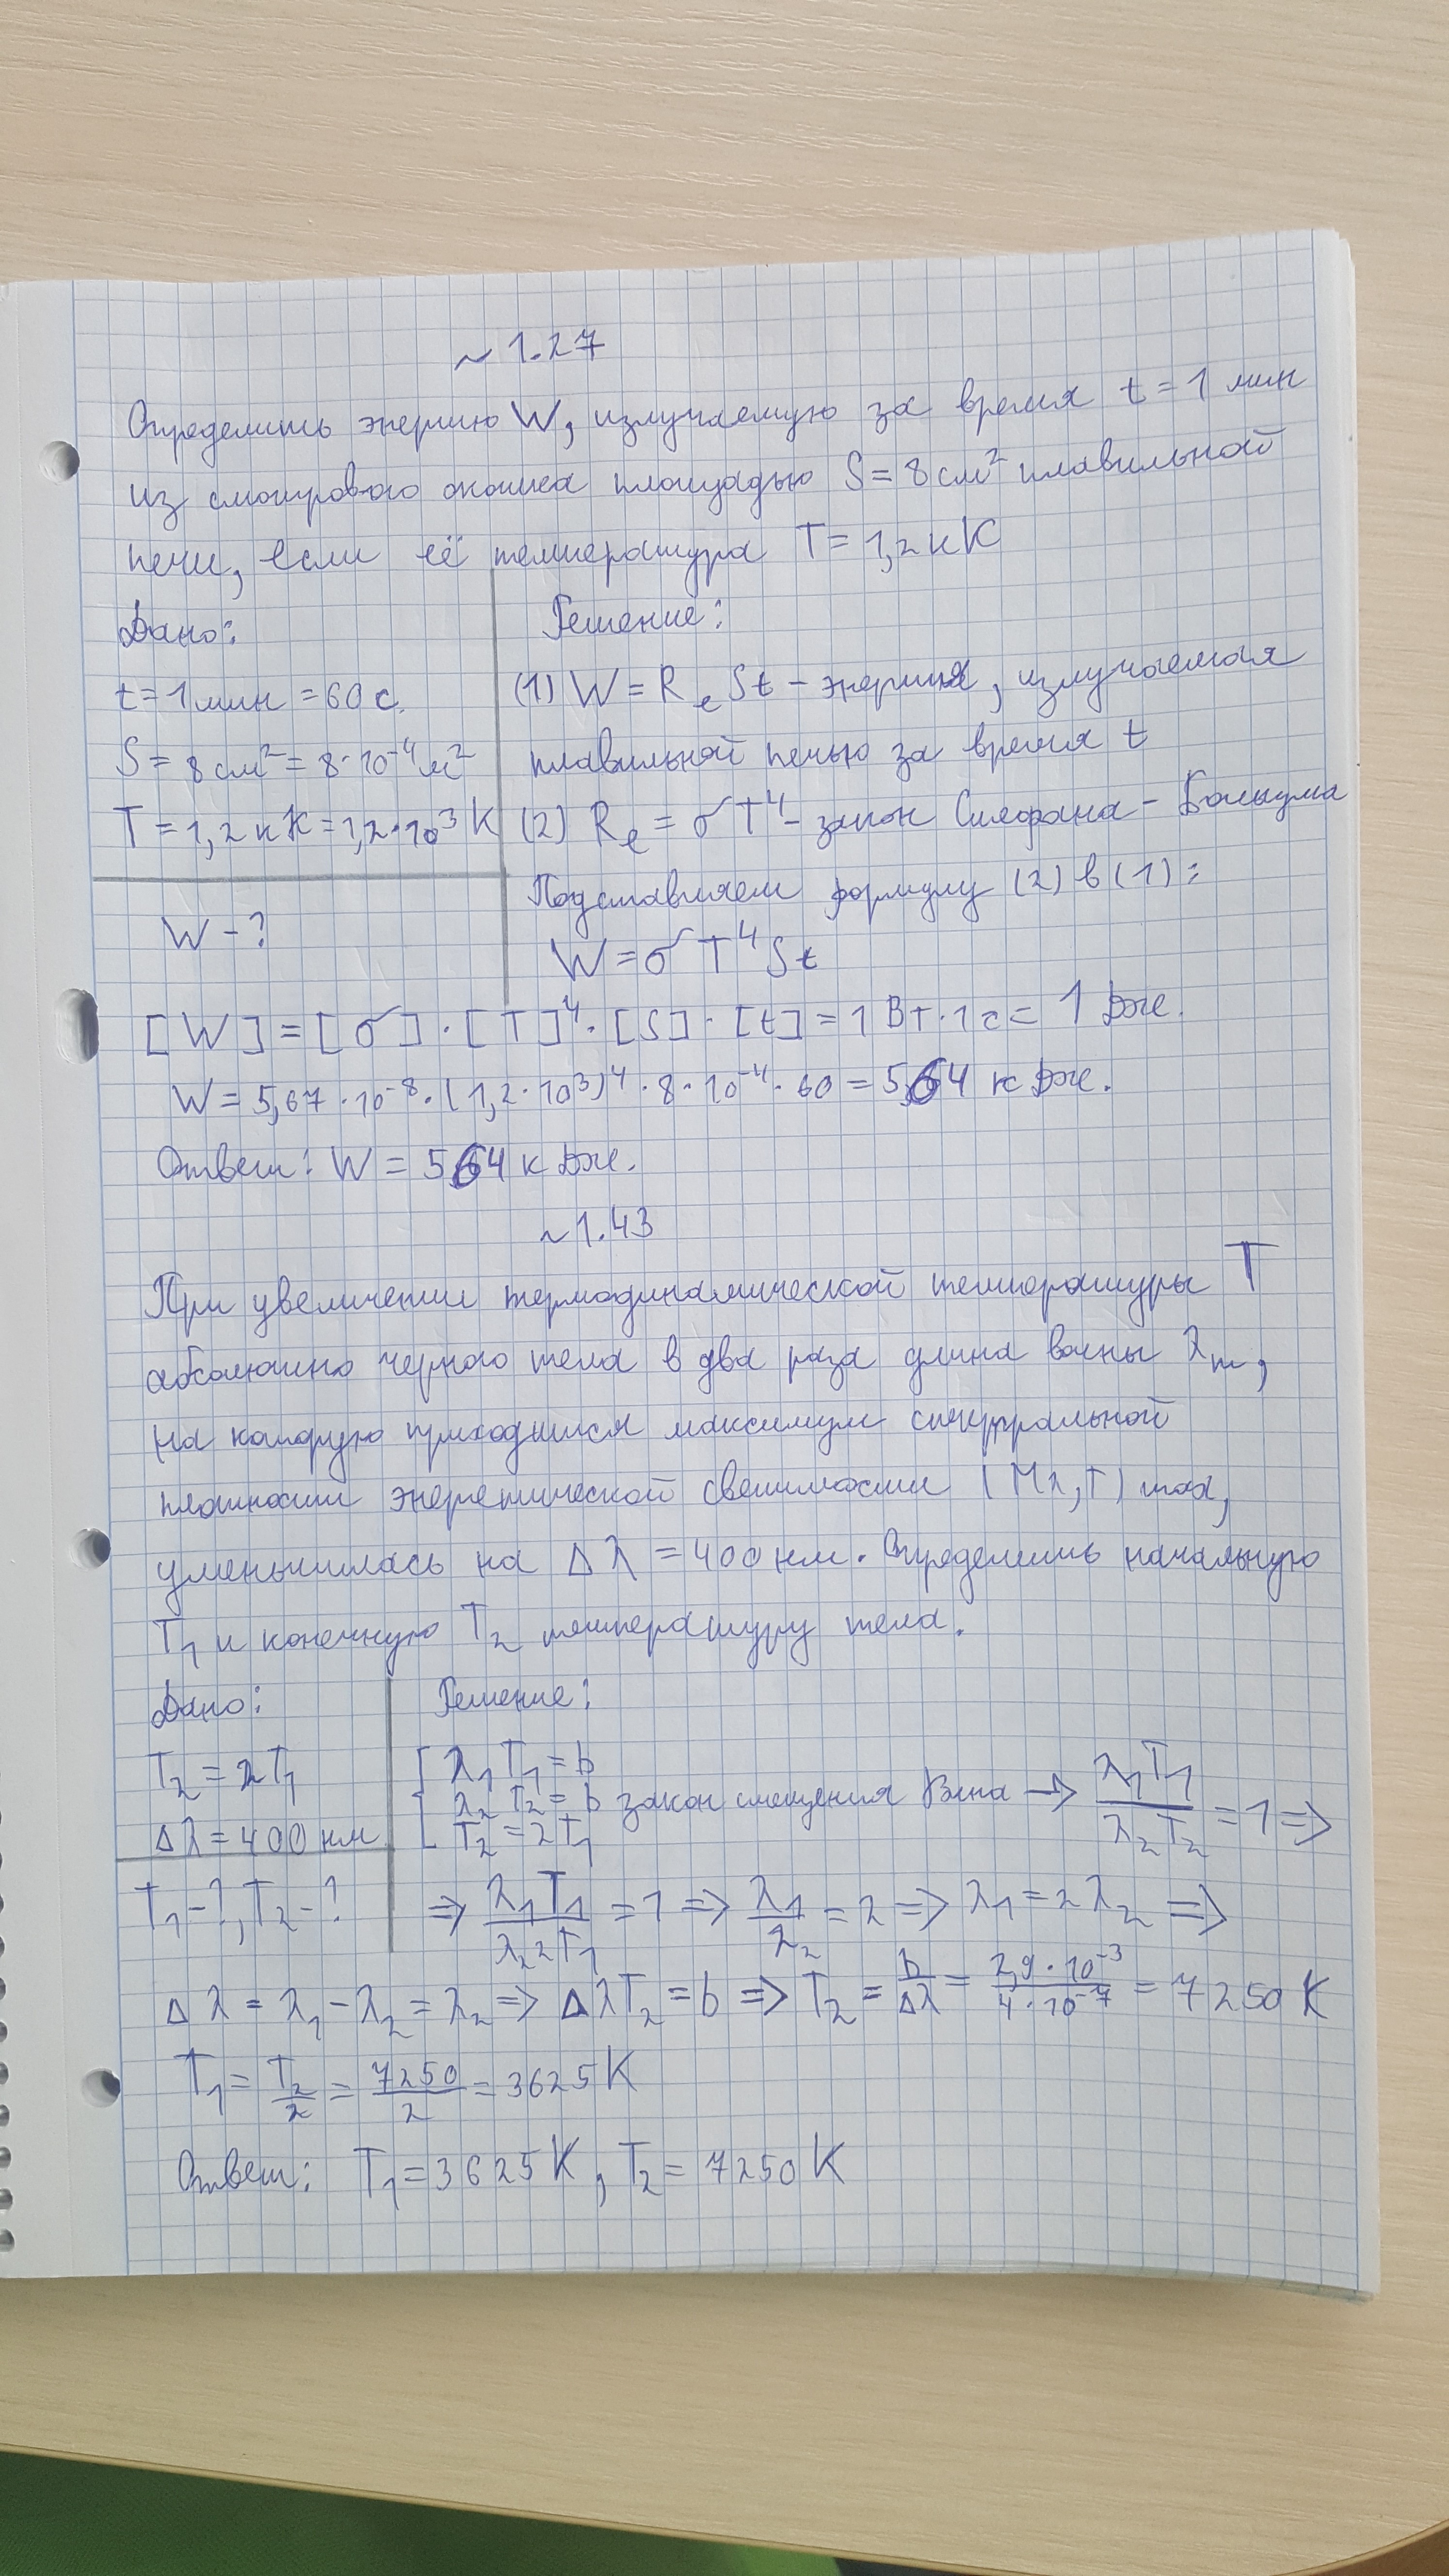 ~ 1.27
Определить энергию W, излучаемую за время t = 1 мин
из смотрового окошка площадью S = 8 см² плавильной
печи, если её температура T = 1,2 кК
Дано: Решение:
t = 1 мин = 60 с. (1) W = Rₑ St – энергия, излучаемая
плавильной печью за время t
S = 8 см² = 8·10⁻⁴ м²
T = 1,2 кК = 1,2·10³ K (2) Rₑ = σT⁴ – закон Стефана – Больцмана
Подставляем формулу (2) в (1):
W – ?
W = σT⁴St
[W] = [σ]·[T]⁴·[S]·[t] = 1 Вт·1 с = 1 Дж.
W = 5,67·10⁻⁸·(1,2·10³)⁴·8·10⁻⁴·60 = 5,64 кДж.
Ответ: W = 5,64 кДж.
~ 1.43
При увеличении термодинамической температуры T
абсолютно черного тела в два раза длина волны λₘ,
на которую приходится максимум спектральной
плотности энергетической светимости (Mλ,T) max,
уменьшилась на Δλ = 400 нм. Определить начальную
T₁ и конечную T₂ температуру тела.
Дано: Решение:
T₂ = 2T₁
Δλ = 400 нм
λ₁T₁ = b
λ₂T₂ = b закон смещения Вина → λ₁T₁/λ₂T₂ = 1 ⇒
T₂ = 2T₁
T₁ – ?, T₂ – ? ⇒ λ₁T₁/λ₂2T₁ = 1 ⇒ λ₁/λ₂ = 2 ⇒ λ₁ = 2λ₂ ⇒
Δλ = λ₁ – λ₂ = λ₂ ⇒ ΔλT₂ = b ⇒ T₂ = b/Δλ = 2,9·10⁻³/4·10⁻⁷ = 7250 K
T₁ = T₂/2 = 7250/2 = 3625 K
Ответ: T₁ = 3625 K, T₂ = 7250 K